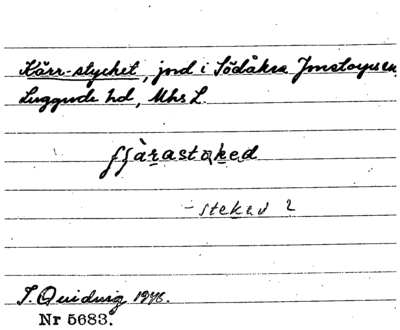 Kärr-stycket, jord i Södåkra Jonstorps sn,
Luggude hd, Mhs L.
fjàrastaked
- steked ?
I. Quidvig 1946.
Nr 5683.